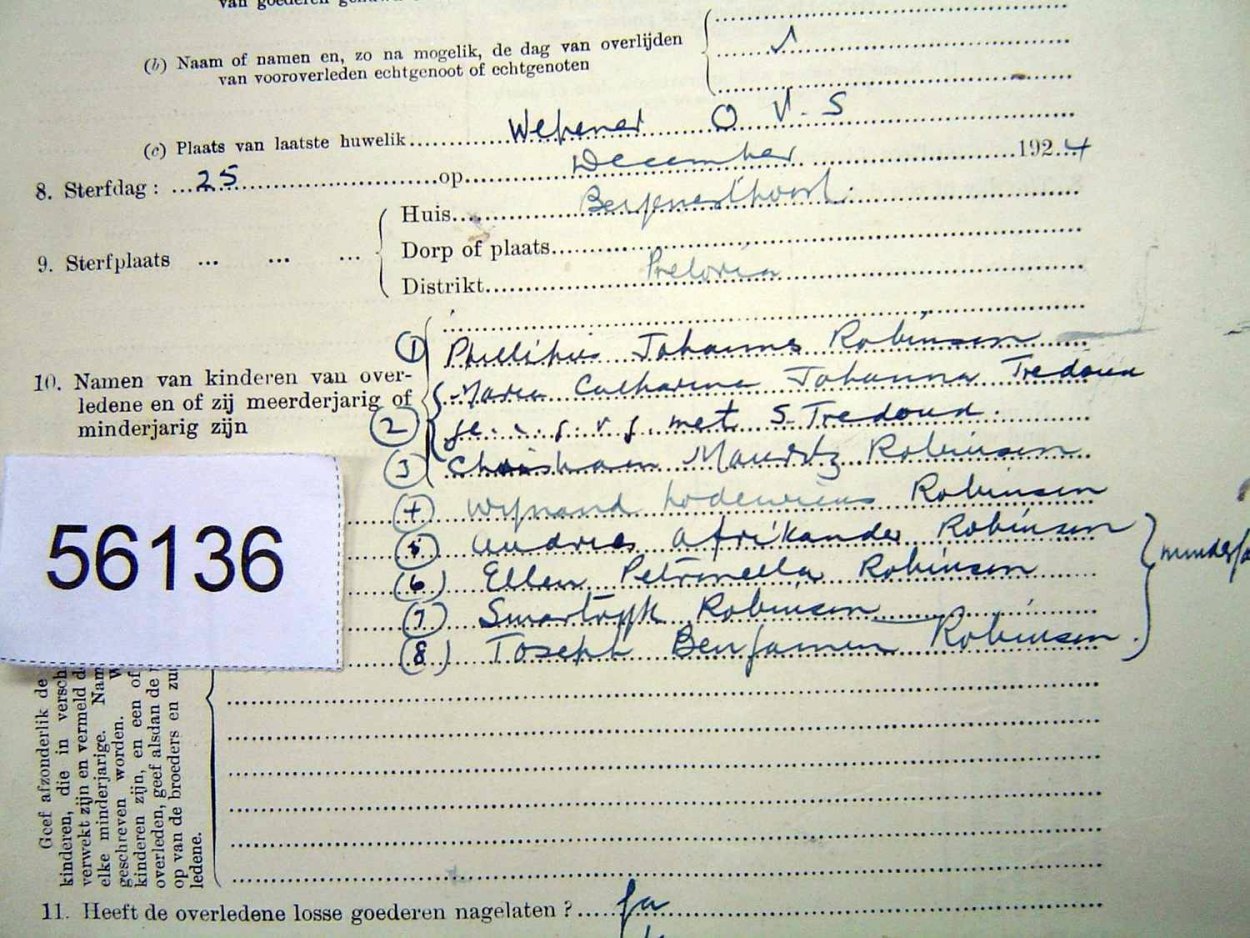 van goederen
(b) Naam of namen en, zo na mogelik, de dag van overlijden
van vooroverleden echtgenoot of echtgenoten
(c) Plaats van laatste huwelik Wepener O V. S
8. Sterfdag : 25 op December 1924
9. Sterfplaats ... ... ...
Huis
Dorp of plaats
Distrikt Pretoria
10. Namen van kinderen van over-
ledene en of zij meerderjarig of
minderjarig zijn
(1) Phillipus Johannes Robinson
(2) Maria Catharina Johanna Tredoux
met S. Tredoux.
(3) Christiaan Mauritz Robinson
(4) Wijnand Lodewicus Robinson
(5) Andries Afrikander Robinson
(6) Ellen Petronella Robinson
(7) Smartryk Robinson
(8) Joseph Benjamin Robinson.
56136
Geef afzonderlik de
kinderen, die in versch
verwekt zijn en vermeld d
elke minderjarige. Nam
geschreven worden. W
kinderen zijn, en een of
overleden, geef alsdan de
op van de broeders en zu
ledene.
11. Heeft de overledene losse goederen nagelaten ? Ja